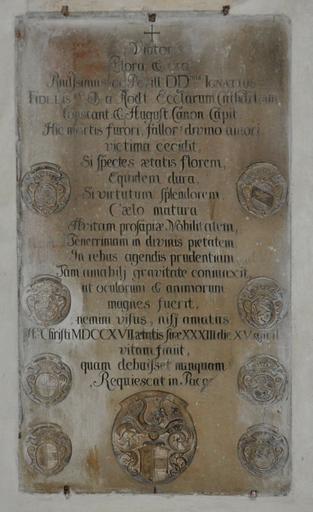 Viator
Plora & ora
Rndissimus ac Perill DD IGNATIUS
FIDELIS à Rodt Ecclarum Cathedralium
Constant & August Canon Capit
Hic mortis furori, fallor! divino amori
victima cecidit,
Si spectes ætatis florem,
Equidem dura,
Si virtutum splendorem
Cælo matura
Avitam prosapiæ Nobilitatem,
Tenerrimam in divinis pietatem
In rebus agendis prudentiam
Tam amabili gravitate connuxit,
ut oculorum & animorum
magnes fuerit,
nemini visus, nisi amatus
Christi MDCCXVII ætatis suæ XXXIII die XV
vitam finiit,
quam debuisset nunquam
Requiescat in Pace